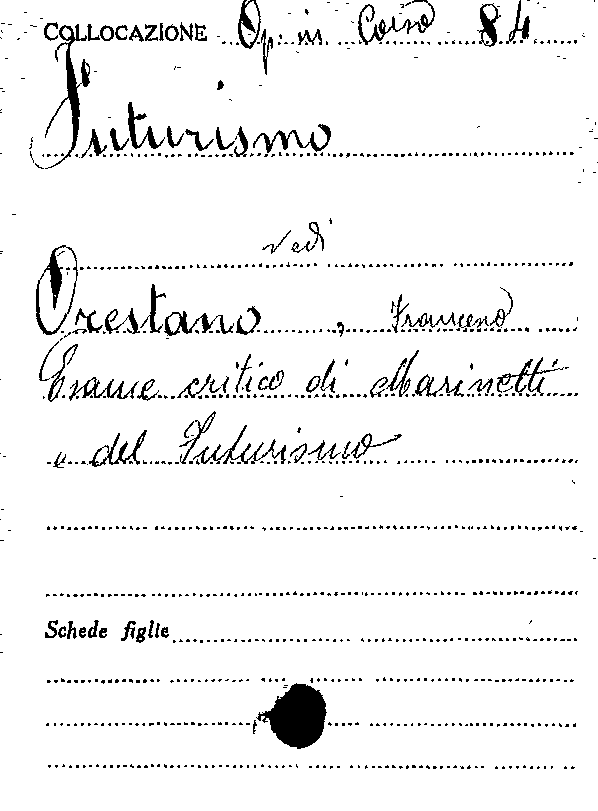 COLLOCAZIONE Op. in Corso 84
Futurismo
Vedi
Orestano, Francesco
Esame critico di Marinetti
e del Futurismo
Schede figlie